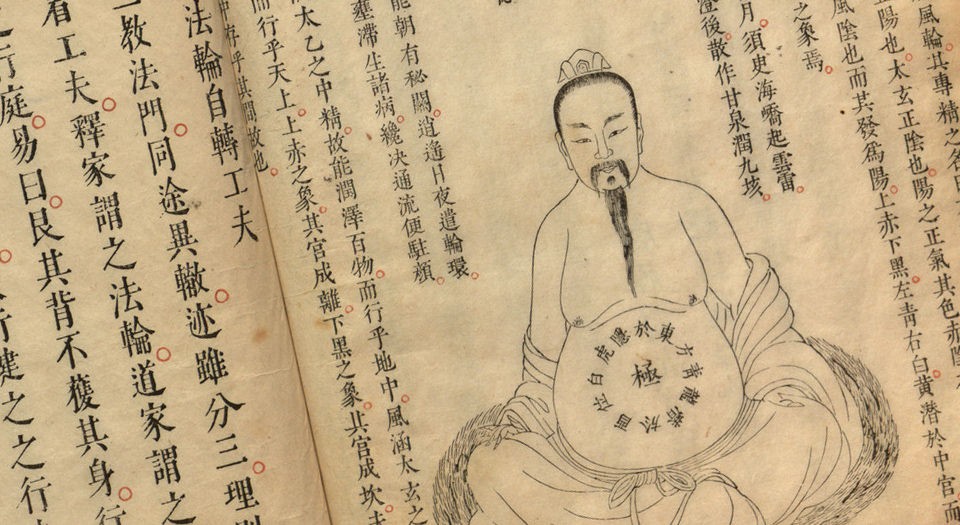 風輪其專精之
正陽也。太玄正陰也。陽之正氣其色赤陰
風陰也而其發爲陽。上赤下黑左青右白黃潜於中宮而
之象焉。
月。須臾海嶠起雲雷。
澄後散作甘泉潤九垓。
白虎隱於東方青龍潛於西位
極
能朝有秘關。逍遙日夜遣輪環。
壅滯生諸病。纔決通流便駐顏。
太乙之中精故能潤澤百物。而行乎地中。風涵太玄之
而行乎天上。上赤之象其宮成離。下黑之象。其宮成坎。夫
中存乎其間故也。
法輪自轉工夫
教法門。同途異轍。迹雖分三。理則
看工夫。釋家謂之法輪。道家謂之
行庭。易曰。艮其背不獲其身。行
行健之之行